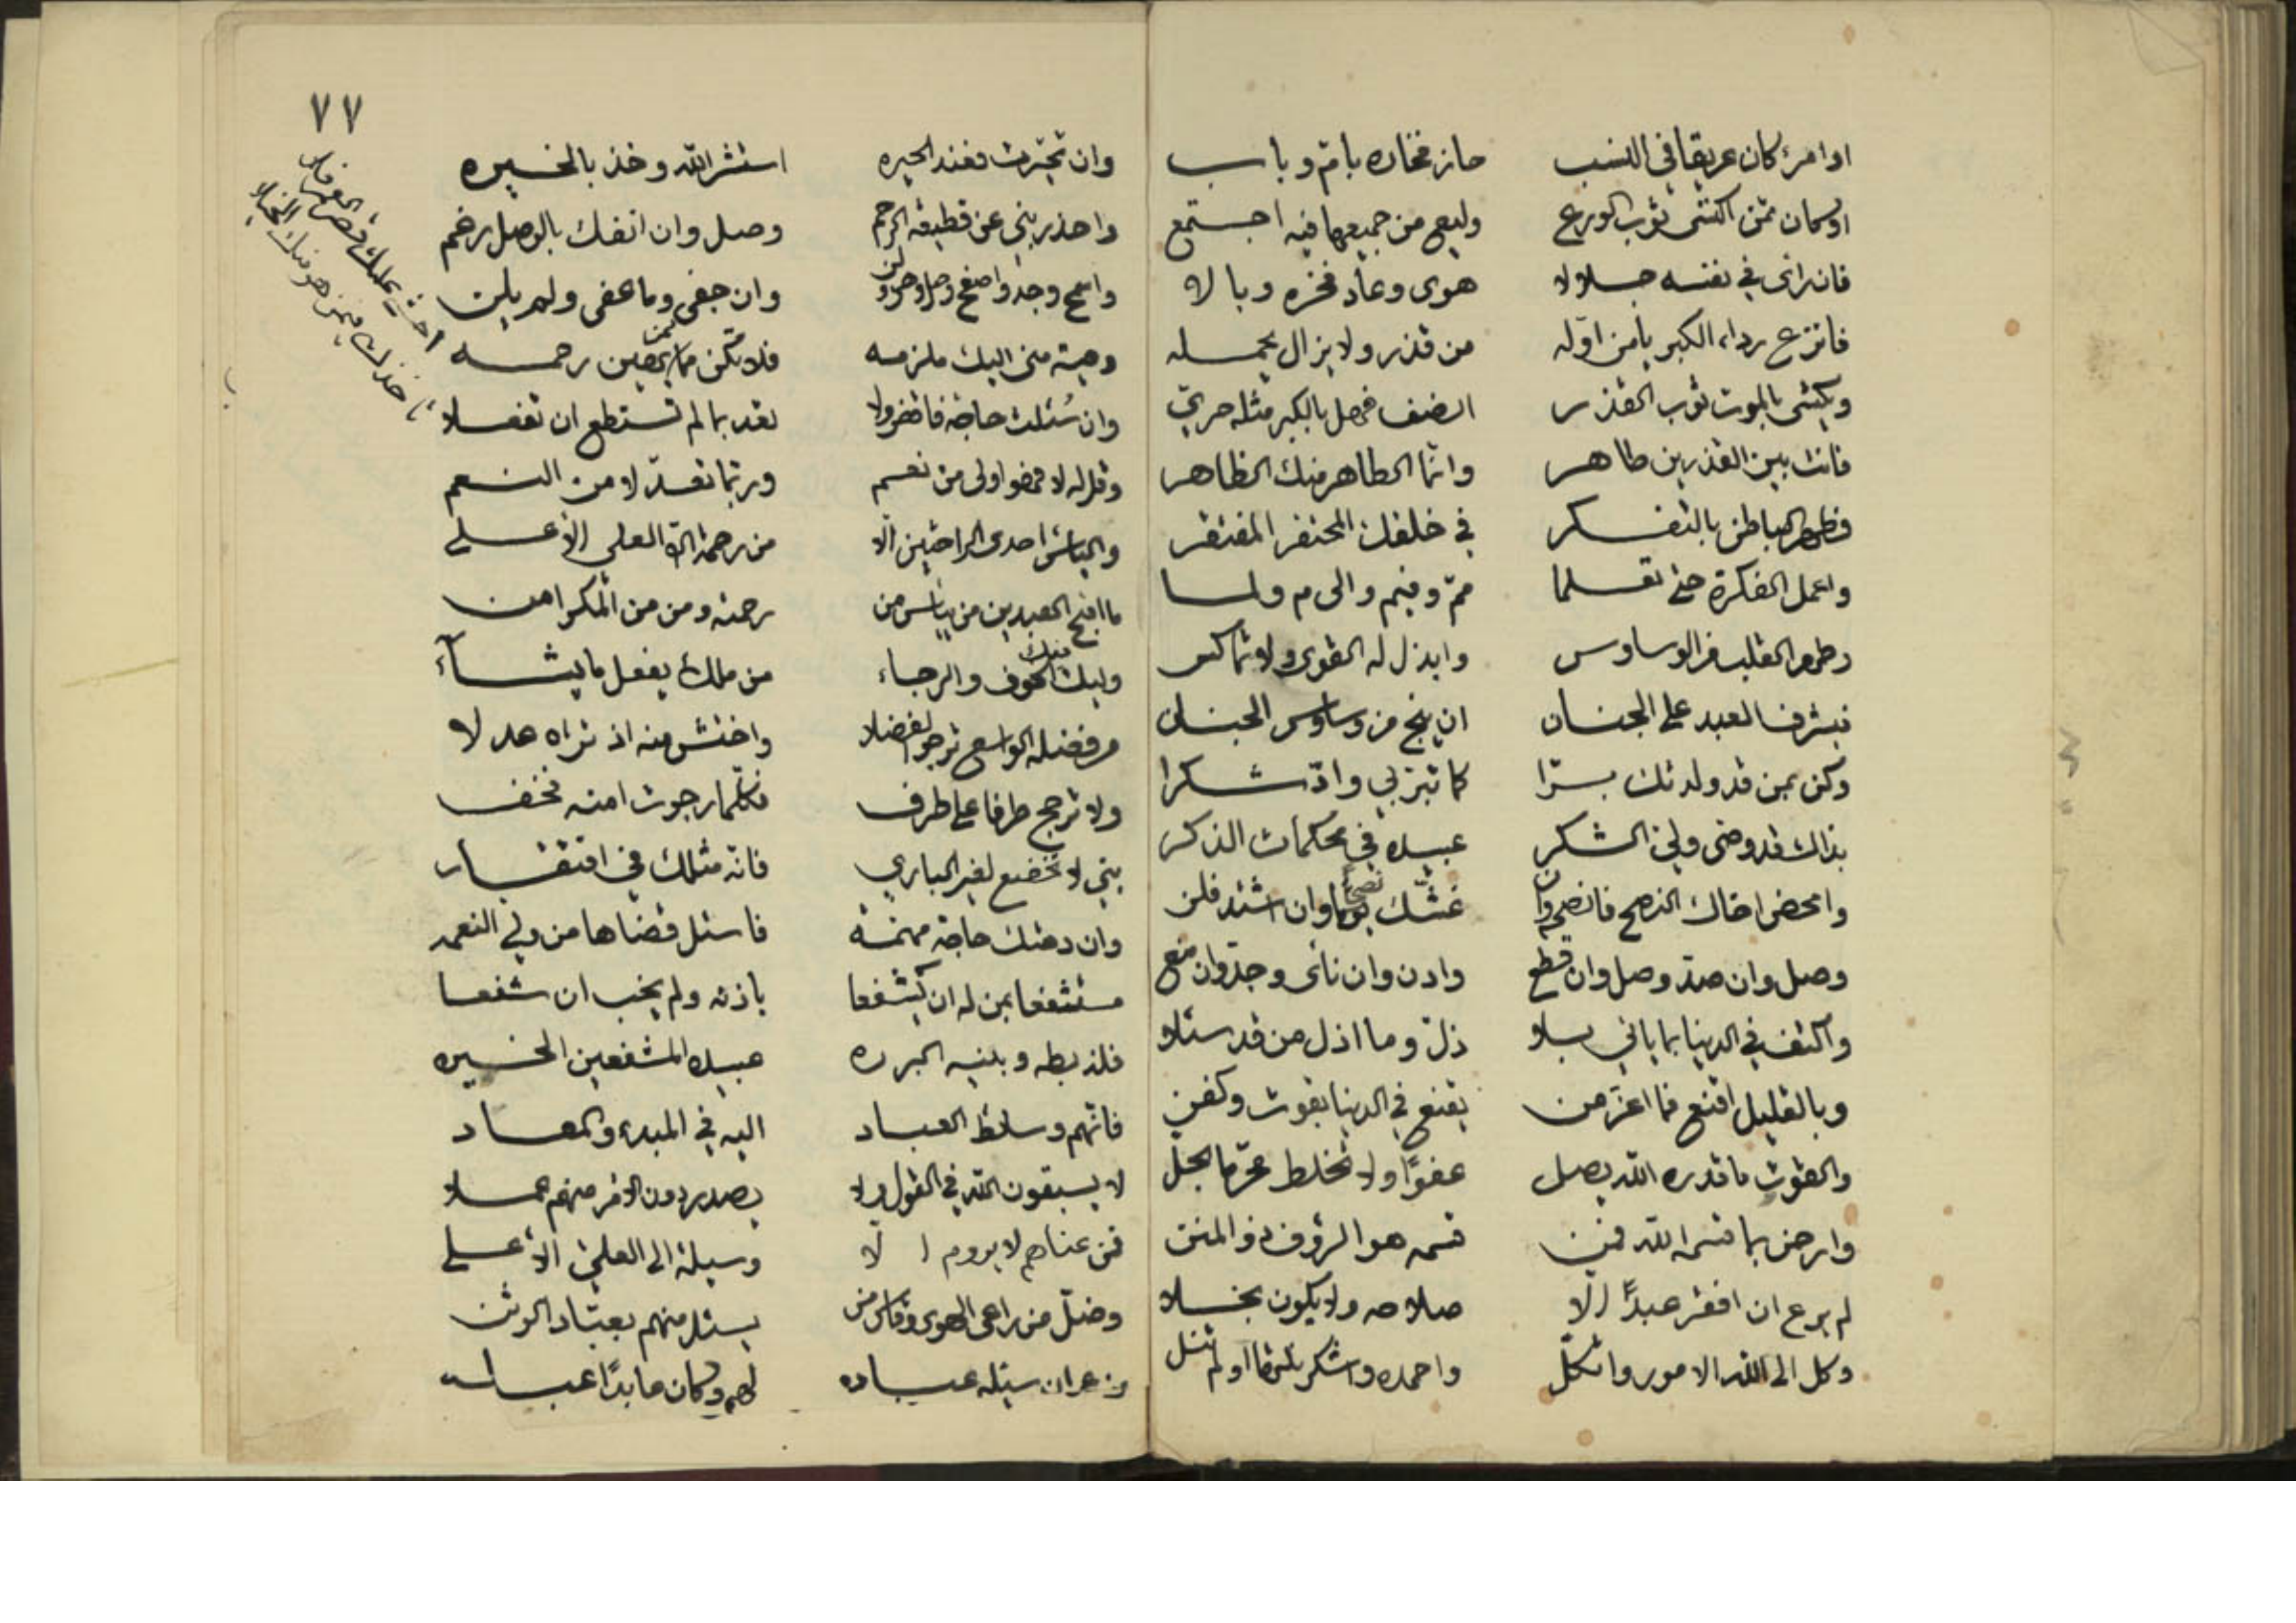 اوامرئ كان عريقا في النسب حاز فخاره بام وباب
اوكان ممن اكتسى ثوب الورع وليع من جميعها فيه اجتمع
فان راى في نفسه جلالا هوى وعاد فخره وبالا
فانزع رداء الكبر يا من اوله من قذر ولا يزال يحمله
ويكتسى بالموت ثوب القذر انصف فهل بالكبر مثله حري
فانت بين القذرين طاهر وانما الطاهر منك الظاهر
فطهر الباطن بالتفكر في خلقك المحتقر المفتقر
واعمل الفكرة حتى تعلما مم وفيم والى م ولما
وطهر القلب من الوساوس وابذل له القوى ولا تماكس
فيشرف العبد على الجنان ان ينج من وساوس الجنان
وكن بمن قد ولدتك برا كما تبر بي واد شكرا
بذاك قد وصى ولي الشكر عبيده في محكمات الذكر
وامحض اخاك النصح فانصح وان غشك نصحا وان اشتد فلن
وصل وان صد وصل وان قطع وادن وان ناى وجد وان منع
واكتف في الدنيا بما ياتي بلا ذل وما اذل من قد سئلا
وبالقليل اقنع فما اعز من يقنع في الدنيا بقوت وكفن
والقوت ما قدره الله يصل عفوا ولا تخلط محرما بحل
وارض بما قسم الله فمن قسمه هو الرؤف ذو المنن
لم يرع ان افقر عبدا الا صلاحه ولا يكون بخلا
وكل الى الله الامور واتكل واحمده واشكر نلتها او لم تنل
٧٧
وان تحيرت فعند الحيره استشر الله وخذ بالخيره
واحذر بني عن قطيعة الرحم وصل وان انفك بالوصل رغم
واسمح وجد واصفح وصل ولن وان جفى وما عفى ولم يلن
وهبته منى اليك ملزمه فلا تكن ممن يهين رحمه
وان سئلت حاجة فاقض ولا تعد بما لم تستطع ان تفعلا
وقل له لا فهو اولى من نعم وربما تعد لا من النعم
والياس احدى الراحتين الا من رحمة الله العلي الاعلى
ما اقبح العبدين من يياس من رحمته ومن من المكر امن
وليك منك الخوف والرجاء من ملك يفعل ما يشاء
من فضله الواسع ترجو الفضلا واختش منه اذ تراه عدلا
ولا ترجح طرفا على طرف فكلما رجوت امنه فخف
بني لا تخضع لغير الباري فانه مثلك في افتقار
وان دهتك حاجة مهمه فاسئل قضاها من ولي النعمه
مستشفعا بمن له ان يشفعا باذنه ولم يخب ان شفعا
فلذ بطه وبنيه البرره عبيده المشفعين الخيره
فانهم وسائط العباد اليه في المبدء والمعاد
لا يسبقون الله في القول ولا يصدر دون الامر منهم عملا
فمن عناهم لا يروم الا وسيلة الى العلي الاعلى
وضل من راعى الهوى وقاس من يسئل منهم بعباد الوثن